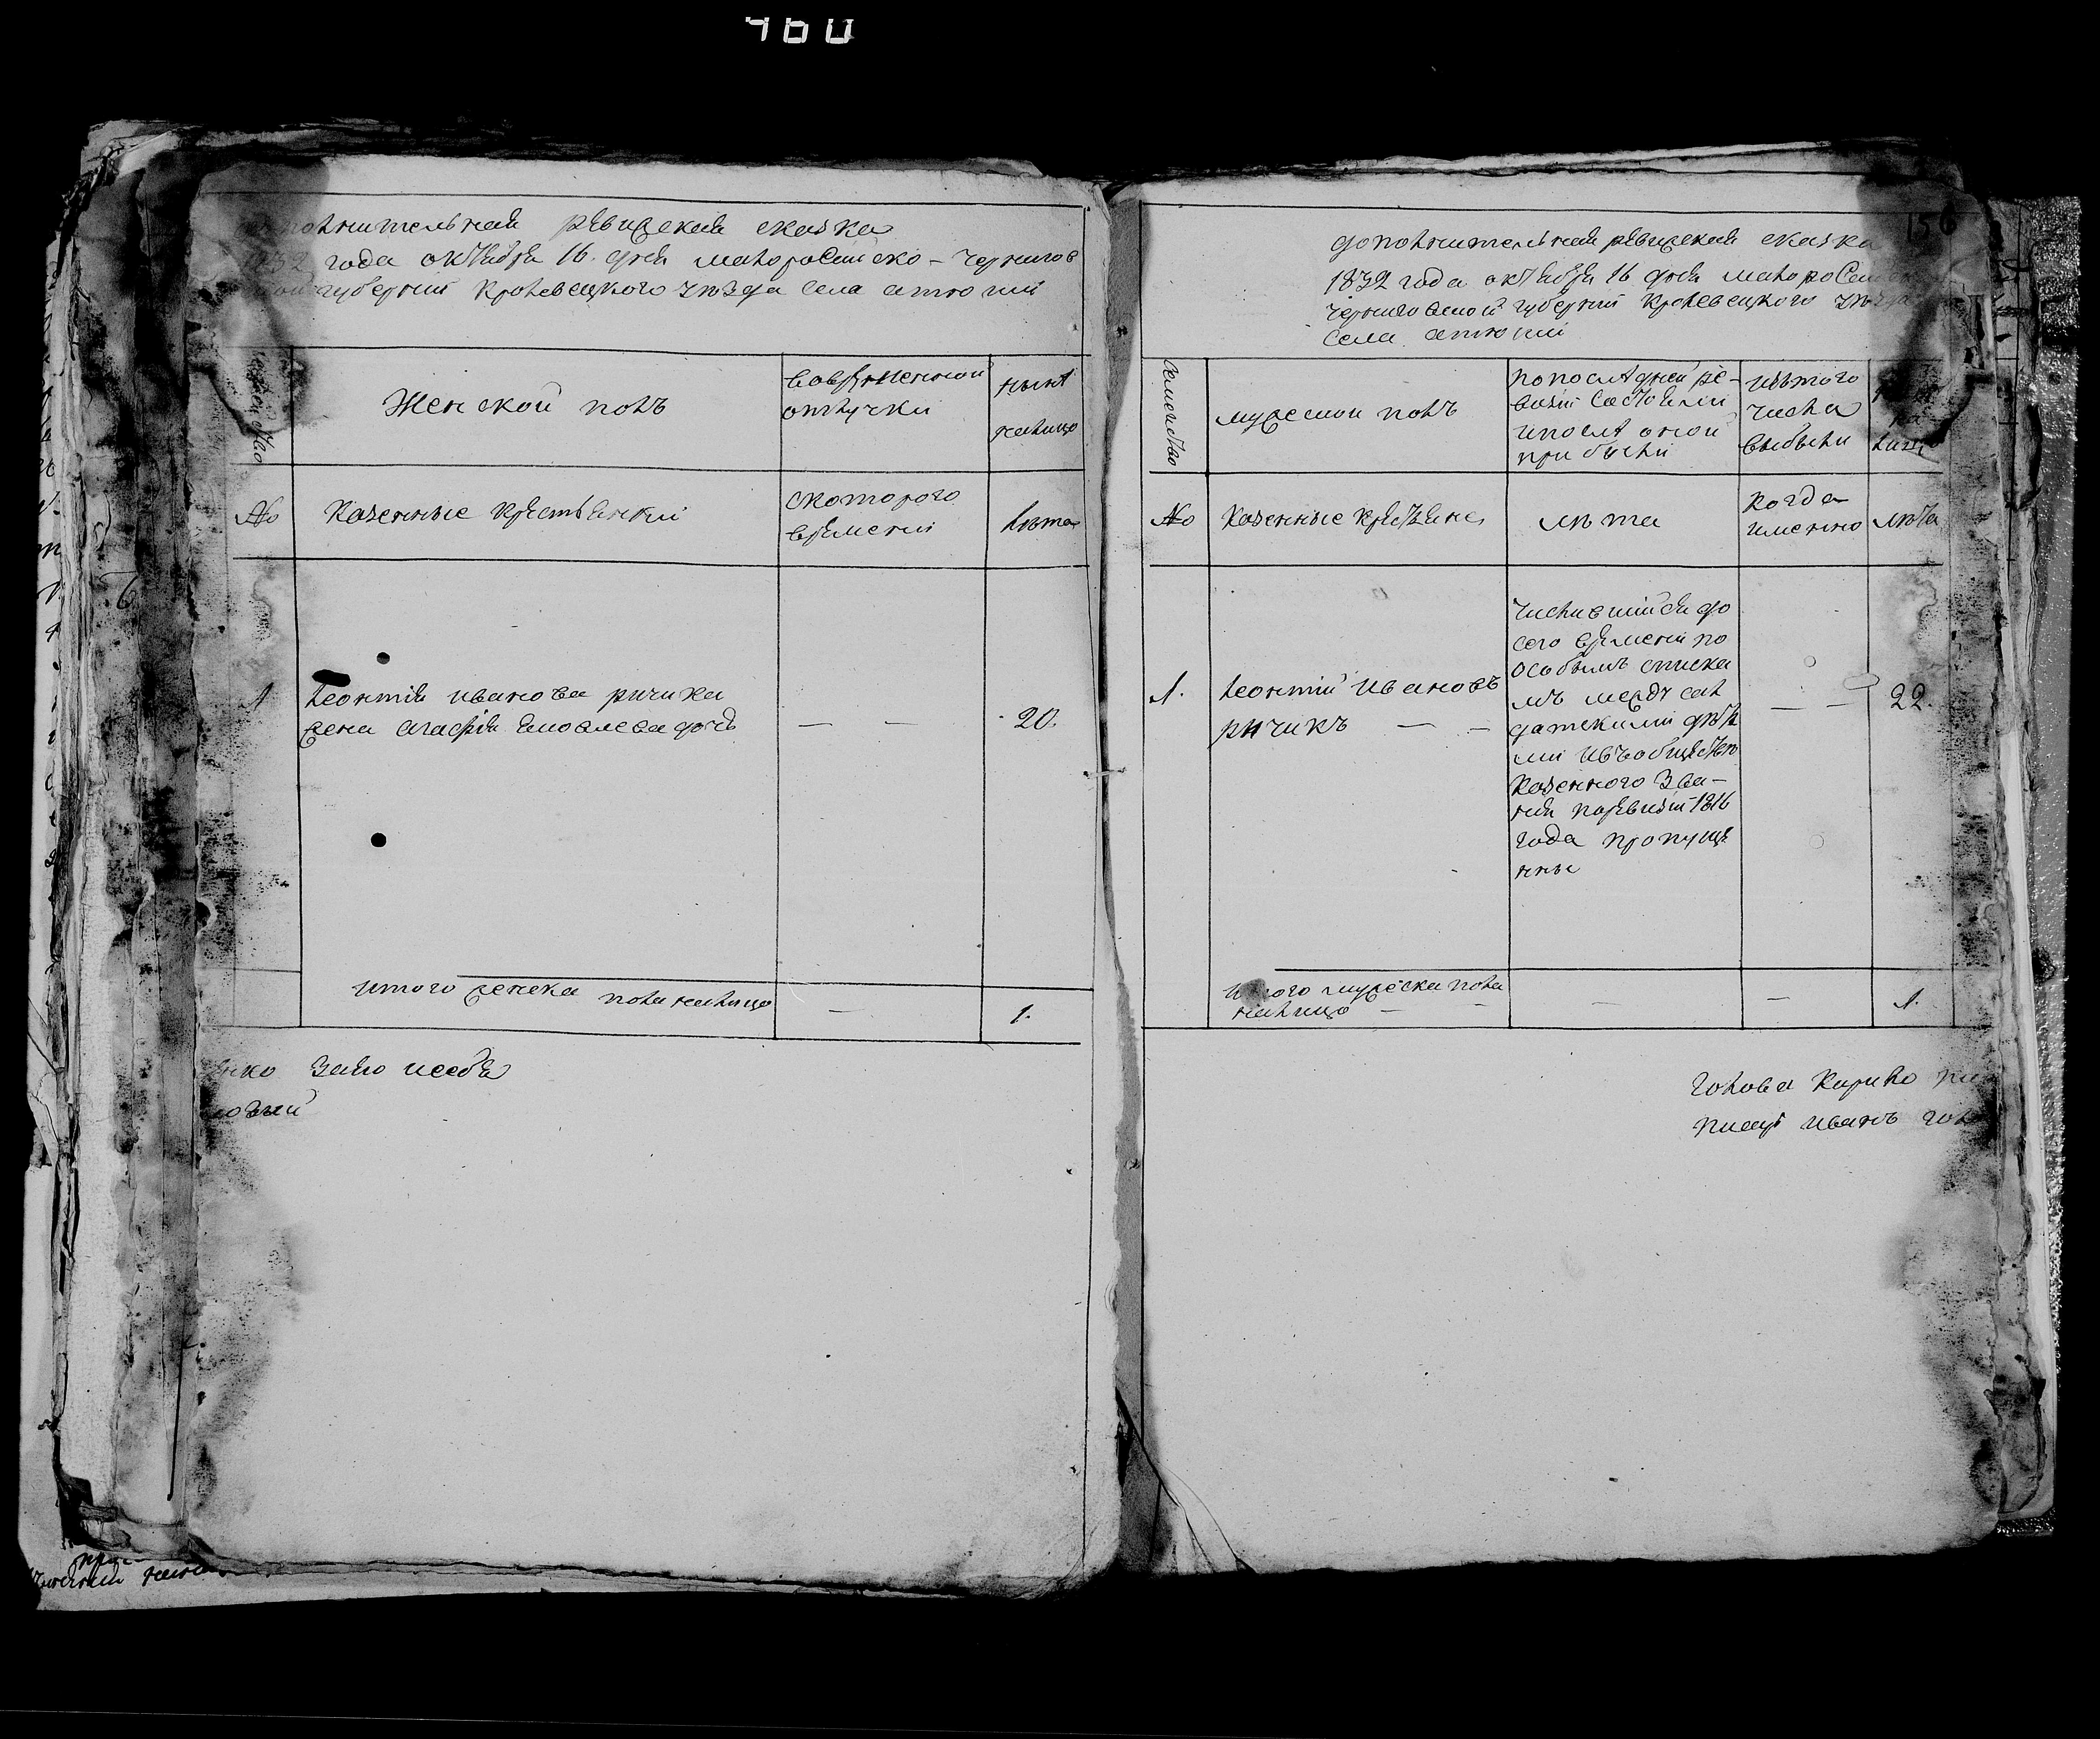 460
дополнительная ревизская сказка
1832 года октября 16. дня малоросийско-чернигов
ской губернии кролевецкого уезда села атюши
семейство
Женской полъ
вовременной
отлучки
ныне
налицо
№
Казенные крестьянки
скоторого
времени
лета
1
леонтія иванова ричика
жена агафія яковлева дочь
— —
20.
итого женска пола налицо
—
1.
нко замо
156
дополнительная ревизская сказка
1832 года октября 16 дня малоросийско
черниговской губернии кролевецкого уезда
села атюши
семейство
мужеской полъ
по последней ре-
визии состояли
ипосле оной
прибыли
изътого
числа
выбыли
№
Казенные крестьяне
лѣта
когда
именно
лѣта
1.
леонтій Ивановъ
ричикъ — —
числившийся до
сего времени по
особымъ списка
мъ между сол
датскими дѣть
ми ивъобществѣ
казенного зва-
ния поревизии 1816
года пропуще
нны
— —
22.
итого мужеска пола
налицо — —
—
—
1.
голова Кирило
писарь иванъ